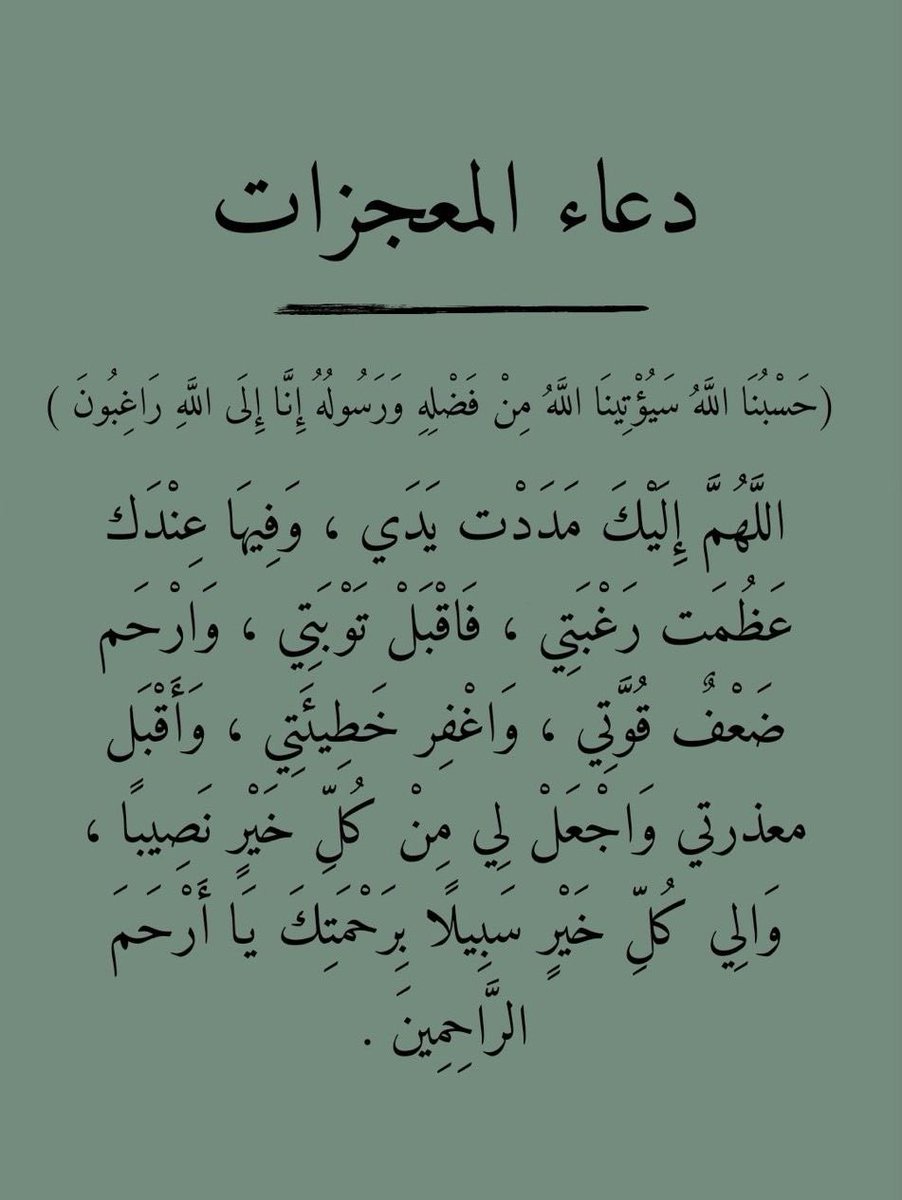 دعاء المعجزات
(حَسْبُنَا اللَّهُ سَيُؤْتِينَا اللَّهُ مِنْ فَضْلِهِ وَرَسُولُهُ إِنَّا إِلَى اللَّهِ رَاغِبُونَ )
اللَّهُمَّ إِلَيْكَ مَدَدْت يَدَي ، وَفِيهَا عِنْدَك
عَظُمَت رَغْبَتِي ، فَاقْبَلْ تَوْبَتِي ، وَارْحَم
ضَعْفٌ قُوَّتِي ، وَاغْفِر خَطِيئَتِي ، وَأَقْبَل
معذرتي وَاجْعَلْ لِي مِنْ كُلِّ خَيْرٍ نَصِيبًا ،
وَالِي كُلِّ خَيْرٍ سَبِيلًا بِرَحْمَتِكَ يَا أَرْحَمَ
الرَّاحِمِينَ .